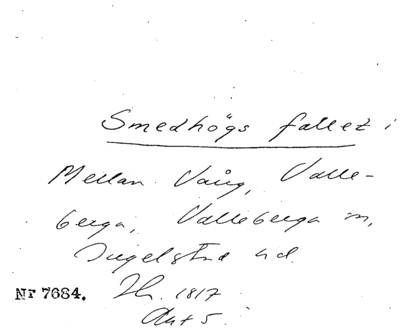 Smedhögs fallet i
Mellan Vång, Valle-
berga, Valleberga sn,
Ingelstad hd.
Nr 7684. Hr. 1817
Akt 5.